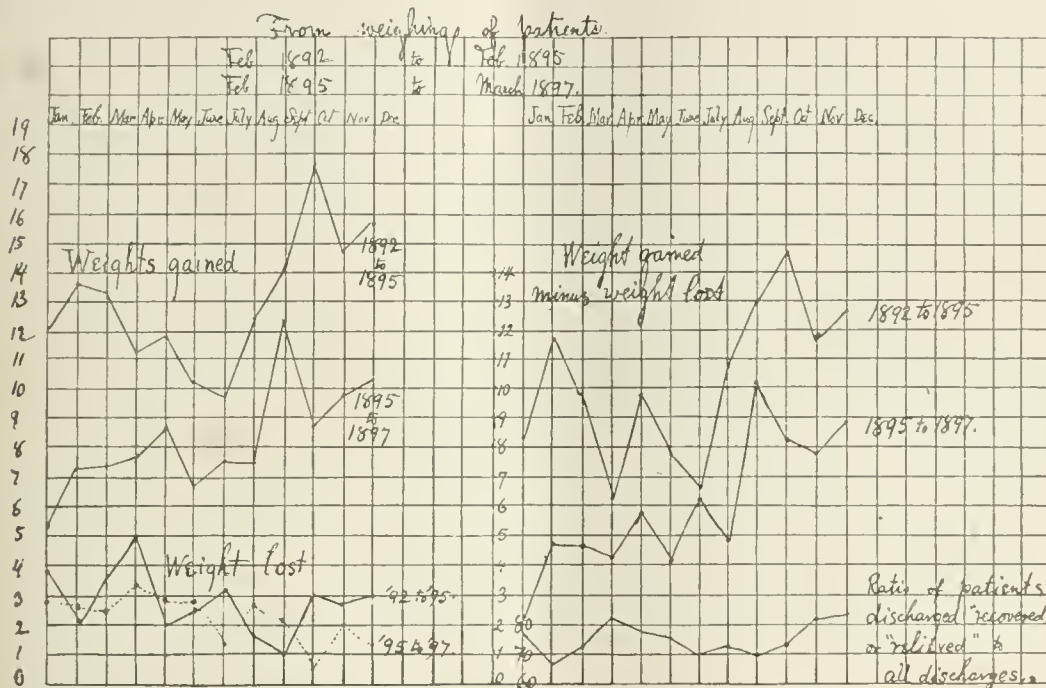 From weighing of patients.
Feb 1892 to Feb. 1895
Feb 1895 to March 1897.
Jan. Feb. Mar Apr May June July Aug Sept Oct Nov Dec
Jan Feb Mar Apr May June July Aug Sept. Oct Nov Dec.
19
18
17
16
15
14
13
12
11
10
9
8
7
6
5
4
3
2
1
0
Weights gained
1892
to
1895
1895
to
1897
Weight lost
'92 to '95.
'95 to '97.
14
13
12
11
10
9
8
7
6
5
4
3
2 80
1 70
0 60
Weight gained
minus weight lost
1892 to 1895
1895 to 1897.
Ratio of patients
discharged "recovered"
or "relieved" to
all discharges.